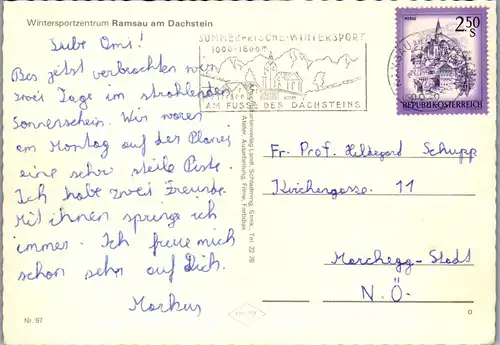 Wintersportzentrum Ramsau am Dachstein
Liebe Omi!
Bis jetzt verbrachten wir
zwei Tage im strahlenden
Sonnenschein. Wir waren
am Montag auf der Planei
eine sehr steile Piste.
Ich habe zwei Freunde.
Mit ihnen springe ich
immer. Ich freue mich
schon sehr auf Dich.
Markus
Nr. 97
SOMMERFRISCHE-WINTERSPORT
AM FUSSE DES DACHSTEINS
MURAU
2.50
S
REPUBLIK ÖSTERREICH
Fr. Prof. Hildegard Schupp
Kirchengasse. 11
Marchegg-Stadt
N.Ö.